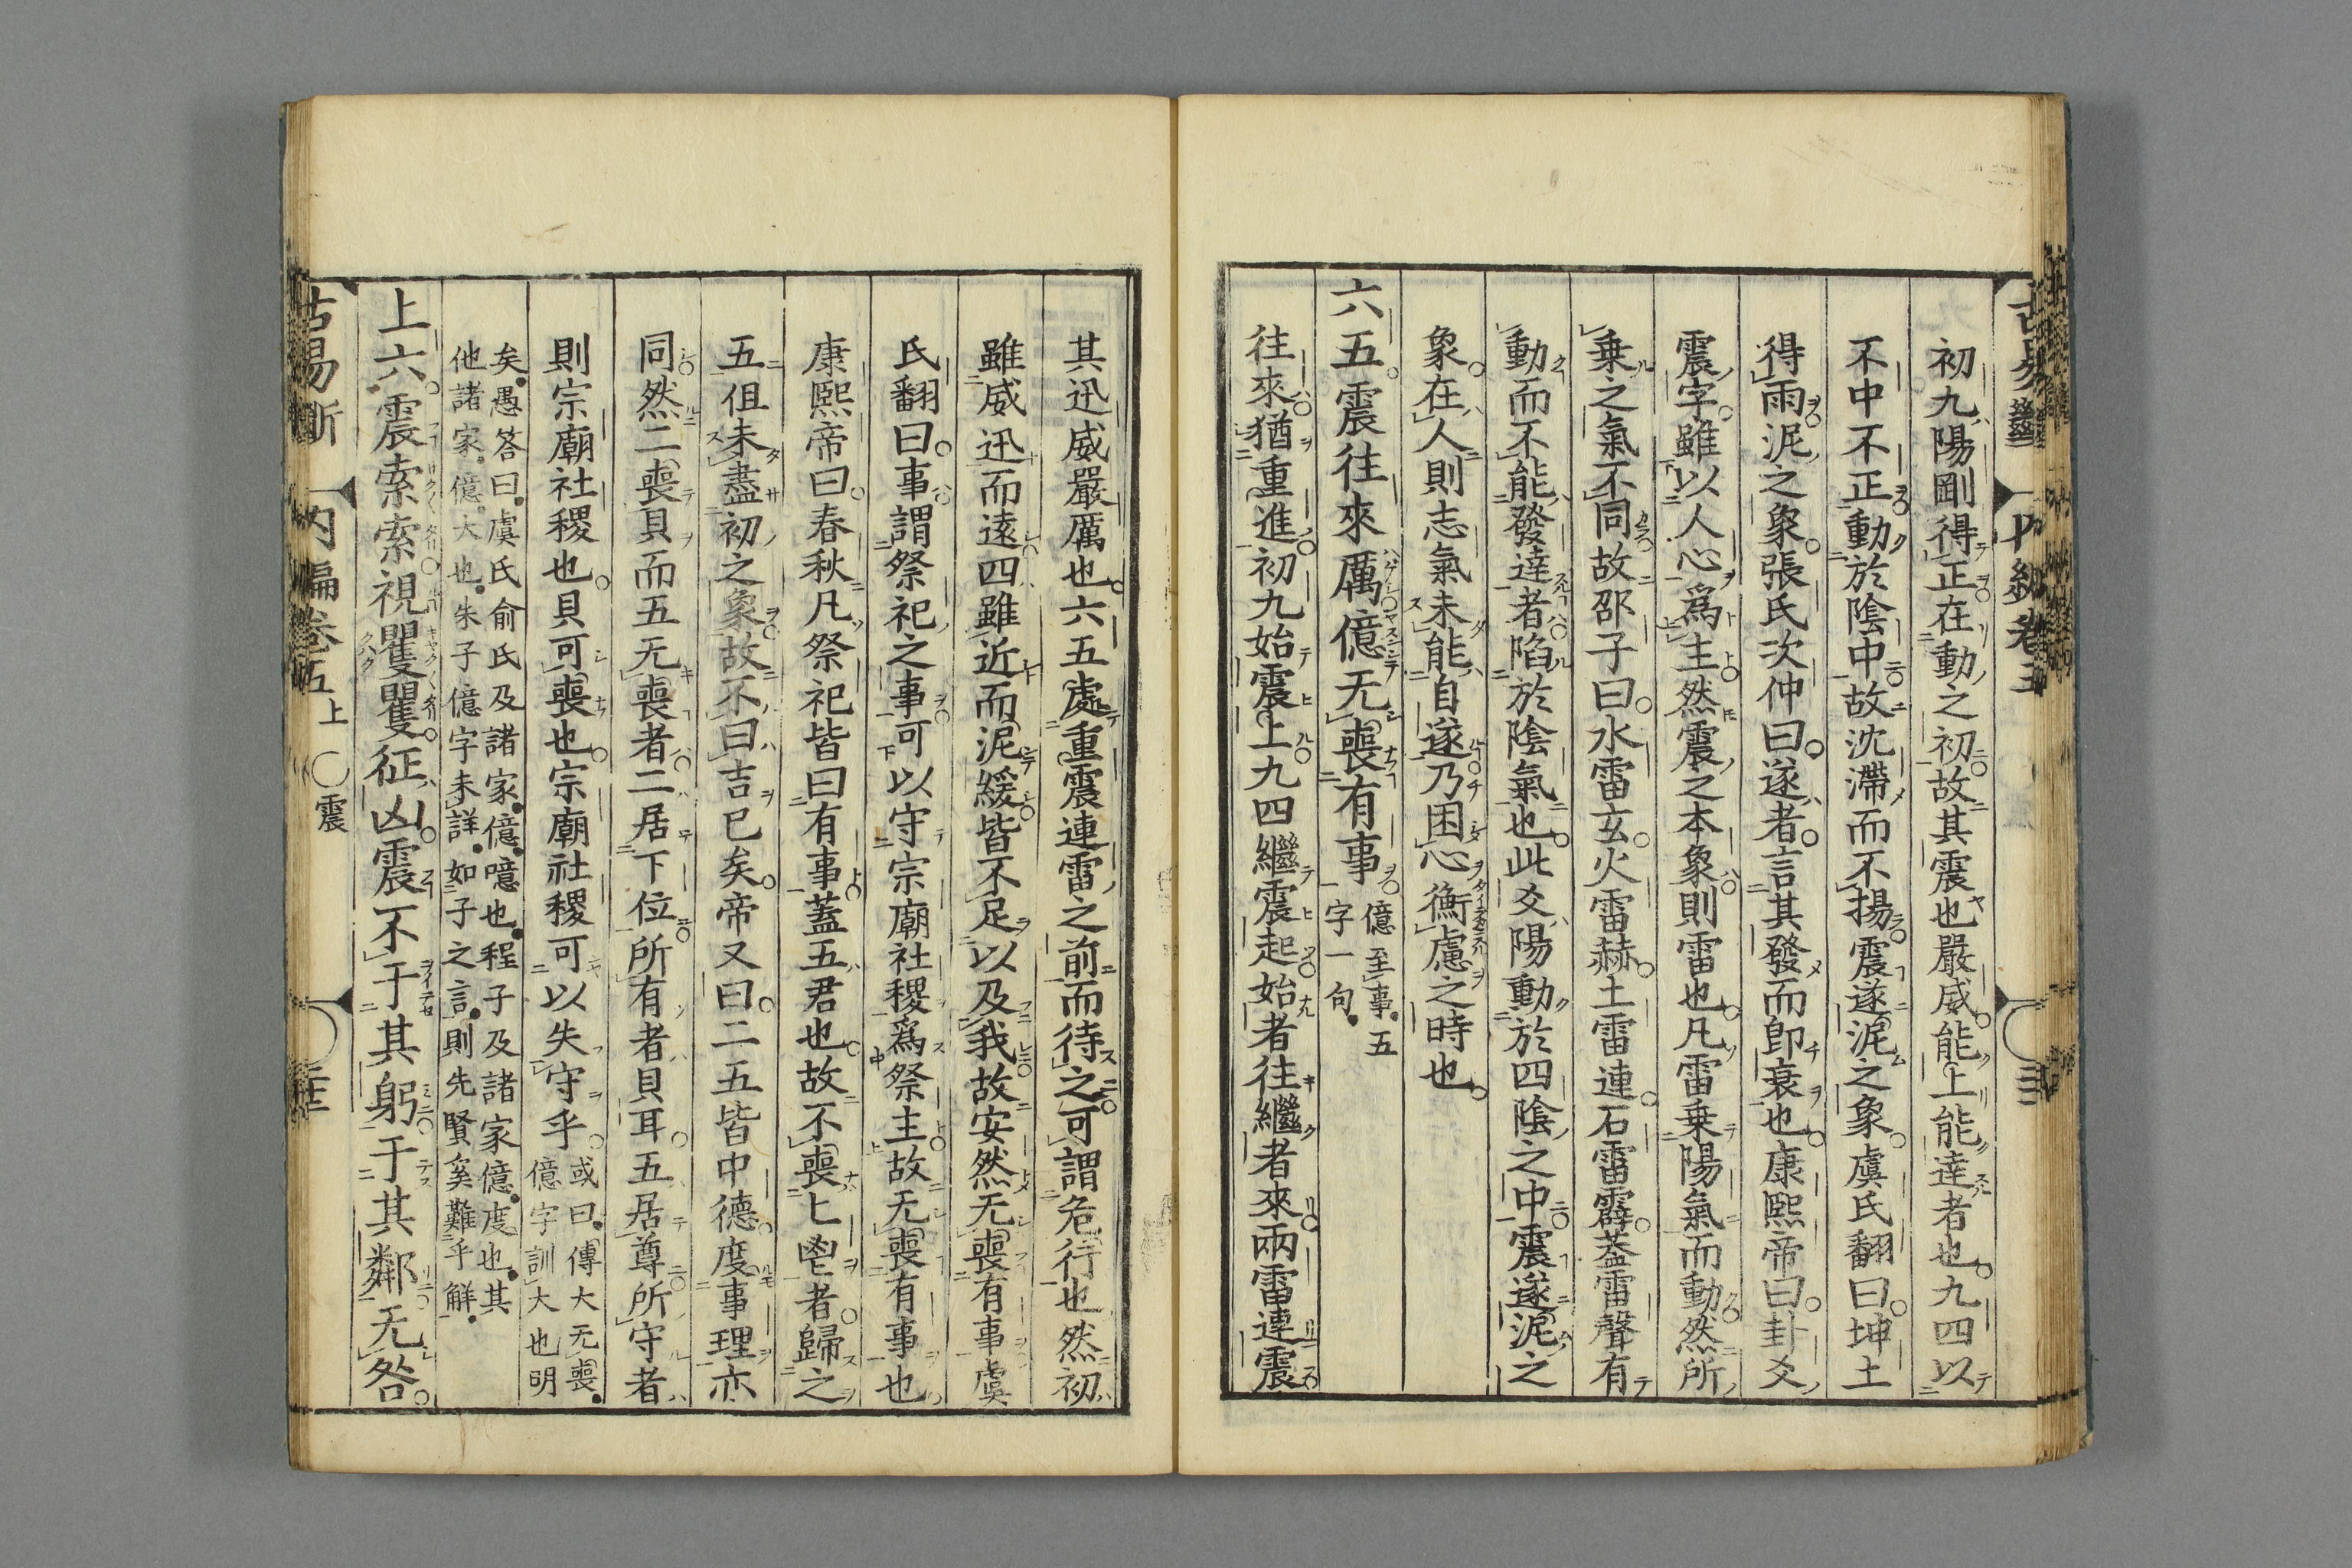 初九陽剛得正在動之初故其震也嚴威能上能達者也九四以
不中不正動於陰中故沈滯而不揚震遂泥之象虞氏翻曰坤土
得雨泥之象張氏次仲曰遂者言其發而即衰也康熙帝曰卦爻
震字雖以人心爲主然震之本象則雷也凡雷乗陽氣而動然所
乗之氣不同故邵子曰水雷玄火雷赫土雷連石雷霹蓋雷聲有
動而不能發達者陷於陰氣也此爻陽動於四陰之中震遂泥之
象在人則志氣未能自遂乃困心衡慮之時也
六五震往來厲億无喪有事億至事五字一句
往來猶重進初九始震上九四繼震起始者往繼者來兩雷連震
其迅威嚴厲也六五處重震連雷之前而待之可謂危行也然初
雖威迅而遠四雖近而泥緩皆不足以及我故安然无喪有事虞
氏翻曰事謂祭祀之事可以守宗廟社稷爲祭主故无喪有事也
康熙帝曰春秋凡祭祀皆曰有事蓋五君也故不喪匕鬯者歸之
五但未盡初之象故不曰吉已矣帝又曰二五皆中德度事理亦
同然二喪貝而五无喪者二居下位所有者貝耳五居尊所守者
則宗廟社稷也貝可喪也宗廟社稷可以失守乎或曰傳大无喪億字訓大也明
矣愚答曰虞氏俞氏及諸家億噫也程子及諸家億度也其
他諸家億大也朱子億字未詳如子之言則先賢奚難乎解
上六震索索視矍矍征凶震不于其躬于其鄰无咎
古易斷 内編卷五上 ○震